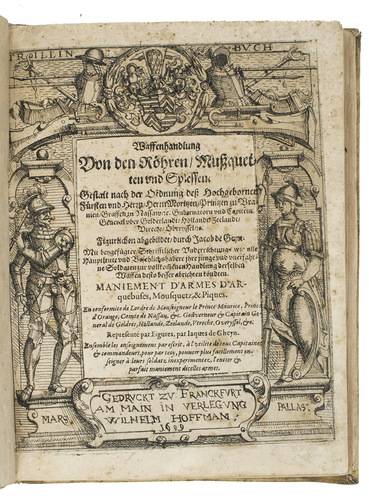 TRILLIN BUCH
Waffenhandlung
Von den Röhren / Mußquet-
ten vnd Spiessen.
Gestalt nach der Ordnung deß Hochgebornen
Fürsten vnd Herrn Herrn Moritzen Printzen zu Vra-
nien / Graffen zu Nassaw ꝛc. Gubernatorn vnd Capitein
General vber Gelderlandt / Hollandt Zeelandt
Vtrecht Oberyssel ꝛc.
Figurlichen abgebildet / durch Jacob de Geyn.
Mit beygefügter Schrifftlicher Vnderrichtung
Hauptleute vnd Bevelichhabere ihre junge vnd vnerfahr-
ne Soldaten zur volkomenen Handlung derselben
Waffen desto besser abrichten können.
MANIEMENT D'ARMES D'AR-
quebuses, Mousquetz, & Piques.
En conformite de l'ordre de Monseigneur le Prince Maurice, Prince
d'Orange, Comte de Nassau, &c. Gouverneur & Capitaine Ge-
neral de Geldres, Hollande, Zeelande, Vtrecht, Overyssel, &c.
Representé par Figures, par Jaques de Gheyn.
Ensemble les enseignemens par escrit, à l'utilite de tous Capitaines
& commandeurs, pour par cecy, pouvoir plus facillement en-
seigner à leurs soldatz inexperimentez, l'entier &
parfait maniement d'icelles armes.
MARS. PALLAS.
GEDRVCKT ZU FRANCKFURT
AM MAIN IN VERLEGUNG
WILHELM HOFFMAN